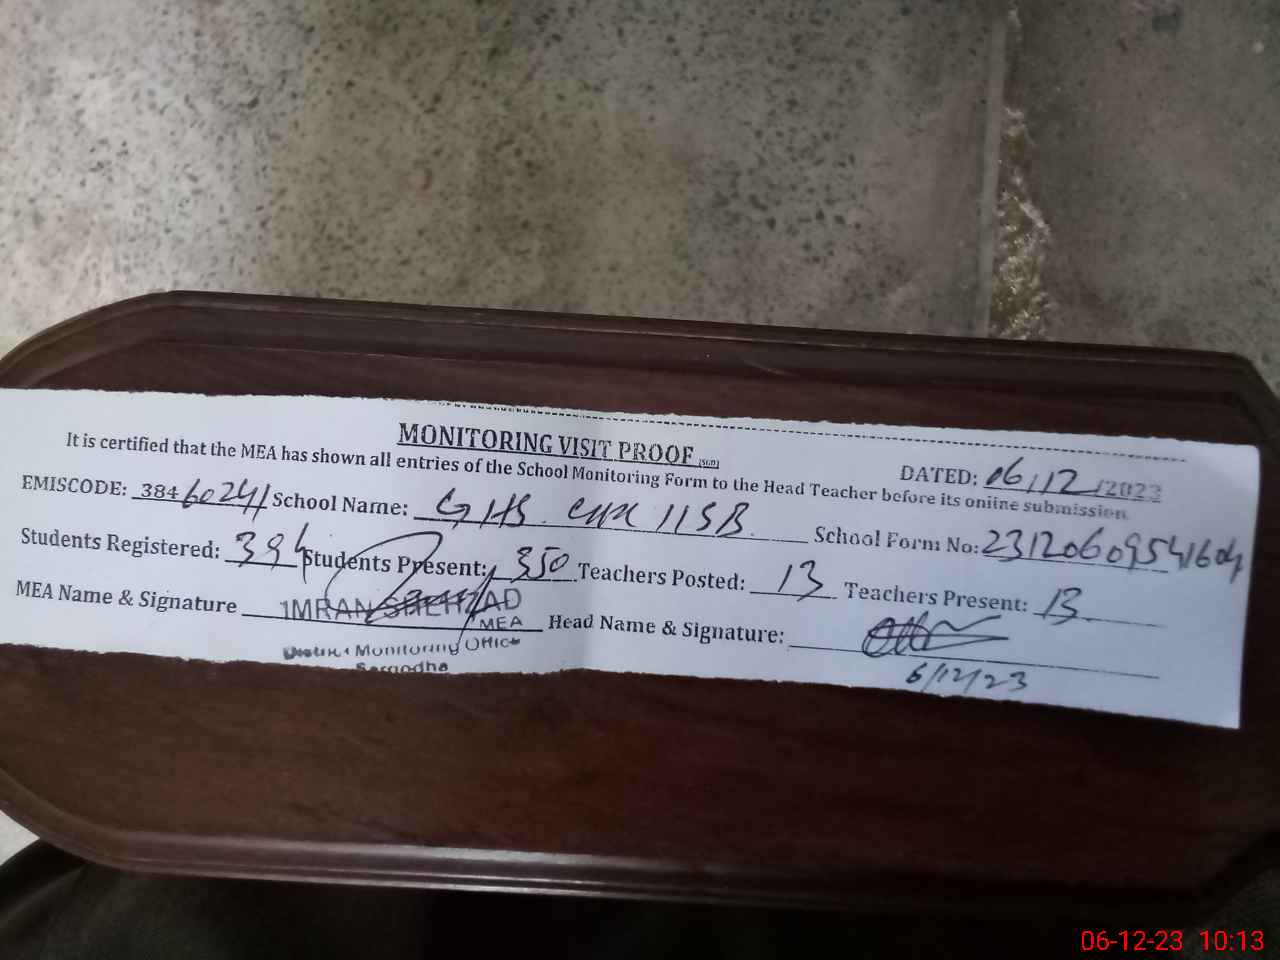 MONITORING VISIT PROOF (SED)
DATED: 06/12/2023
It is certified that the MEA has shown all entries of the School Monitoring Form to the Head Teacher before its online submission.
EMISCODE: 38460241 School Name: GHS 115B School Form No: 2312060954160
Students Registered: 394 Students Present: 350 Teachers Posted: 13 Teachers Present: 13
MEA Name & Signature IMRAN SHEHZAD Head Name & Signature:
MEA
District Monitoring Office
Sargodha
6/12/23
06-12-23 10:13